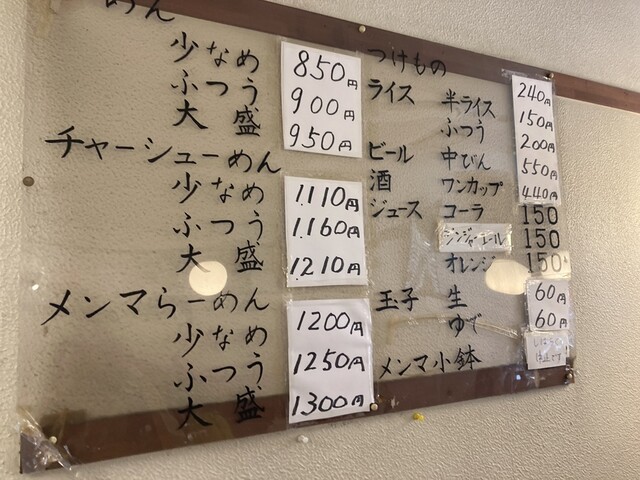 めん
少なめ 850円
ふつう 900円
大盛 950円
チャーシューめん
少なめ 1,110円
ふつう 1,160円
大盛 1,210円
メンマらーめん
少なめ 1200円
ふつう 1250円
大盛 1300円
つけもの 240円
ライス 半ライス 150円
ふつう 200円
ビール 中びん 550円
酒 ワンカップ 440円
ジュース コーラ 150
ジンジャーエール 150
オレンジ 150
玉子 生 60円
ゆで 60円
メンマ小鉢